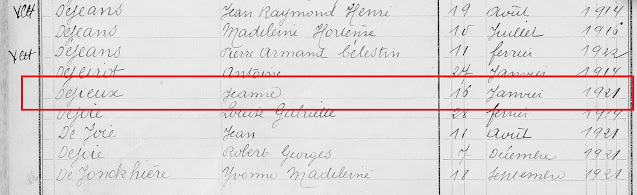 Vctt Déjeans Jean Raymond Henri 19 août 1914
Déjeans Madeleine Hortense 10 Juillet 1916
Vctt Déjeans Pierre Armand Célestin 11 février 1922
Antoine 24 Janvier 1914
Dejeux Jeanne 16 Janvier 1921
Dejoie Louise Gabrielle 28 février 1914
De Joie Jean 11 août 1921
Dejoie Robert Georges 7 Décembre 1921
De Jonckhière Yvonne Madeleine 18 Septembre 1921